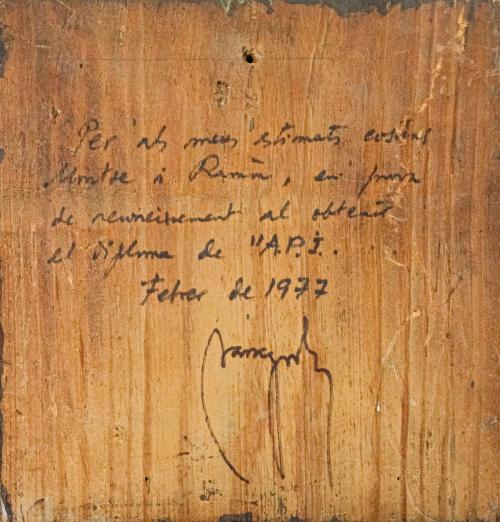 Per als meus estimats cosins
Montse i Ramón, en prova
de reconeixement al obtenir
el diploma de "A.P.I..
Febrer de 1977